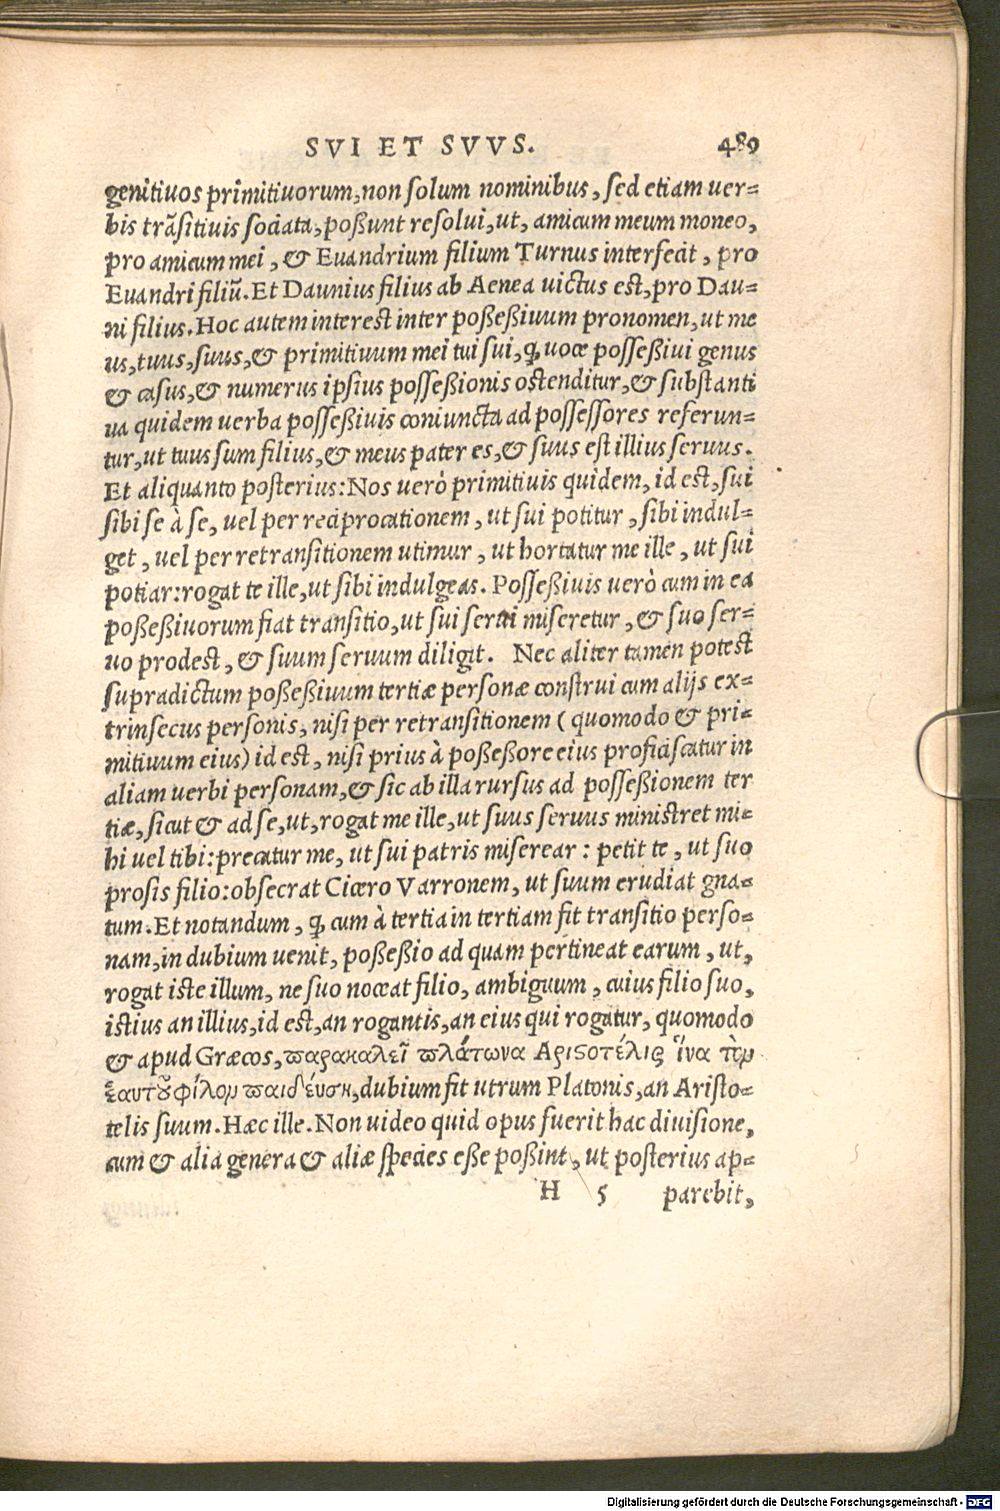 SVI ET SVVS. 489
genitiuos primitiuorum, non solum nominibus, sed etiam uer-
bis trãsitiuis sociata, poßunt resolui, ut, amicum meum moneo,
pro amicum mei, & Euandrium filium Turnus interfecit, pro
Euandri filiũ. Et Daunius filius ab Aenea uictus est, pro Dau-
ni filius. Hoc autem interest inter poßeßiuum pronomen, ut me
us, tuus, suus, & primitiuum mei tui sui, ꝙ uoce posseßiui genus
& casus, & numerus ipsius posseßionis ostenditur, & substanti
ua quidem uerba posseßiuis coniuncta ad possessores referun-
tur, ut tuus sum filius, & meus pater es, & suus est illius seruus.
Et aliquanto posterius: Nos uerò primitiuis quidem, id est, sui
sibi se à se, uel per reciprocationem, ut sui potitur, sibi indul-
get, uel per retransitionem utimur, ut hortatur me ille, ut sui
potiar: rogat te ille, ut sibi indulgeas. Posseßiuis uerò cum in ea
poßeßiuorum fiat transitio, ut sui serui miseretur, & suo ser-
uo prodest, & suum seruum diligit. Nec aliter tamen potest
supradictum poßeßiuum tertiæ personæ construi cum alijs ex-
trinsecus personis, nisi per retransitionem (quomodo & pri-
mitiuum eius) id est, nisi prius à poßeßore eius proficiscatur in
aliam uerbi personam, & sic ab illa rursus ad posseßionem ter
tiæ, sicut & ad se, ut, rogat me ille, ut suus seruus ministret mi-
hi uel tibi: precatur me, ut sui patris miserear: petit te, ut suo
prosis filio: obsecrat Cicero Varronem, ut suum erudiat gna-
tum. Et notandum, ꝙ cum à tertia in tertiam fit transitio perso-
nam, in dubium uenit, poßeßio ad quam pertineat earum, ut,
rogat iste illum, ne suo noceat filio, ambiguum, cuius filio suo,
istius an illius, id est, an rogantis, an eius qui rogatur, quomodo
& apud Græcos, παρακαλεῖ πλάτωνα Αριϛοτέλις ἵνα τὸν
ἑαυτοῦ φίλον παιδεύσῃ, dubium fit utrum Platonis, an Aristo-
telis suum. Hæc ille. Non uideo quid opus fuerit hac diuisione,
cum & alia genera & aliæ species eße poßint, ut posterius ap-
H 5 parebit,
Digitalisierung gefördert durch die Deutsche Forschungsgemeinschaft - DFG